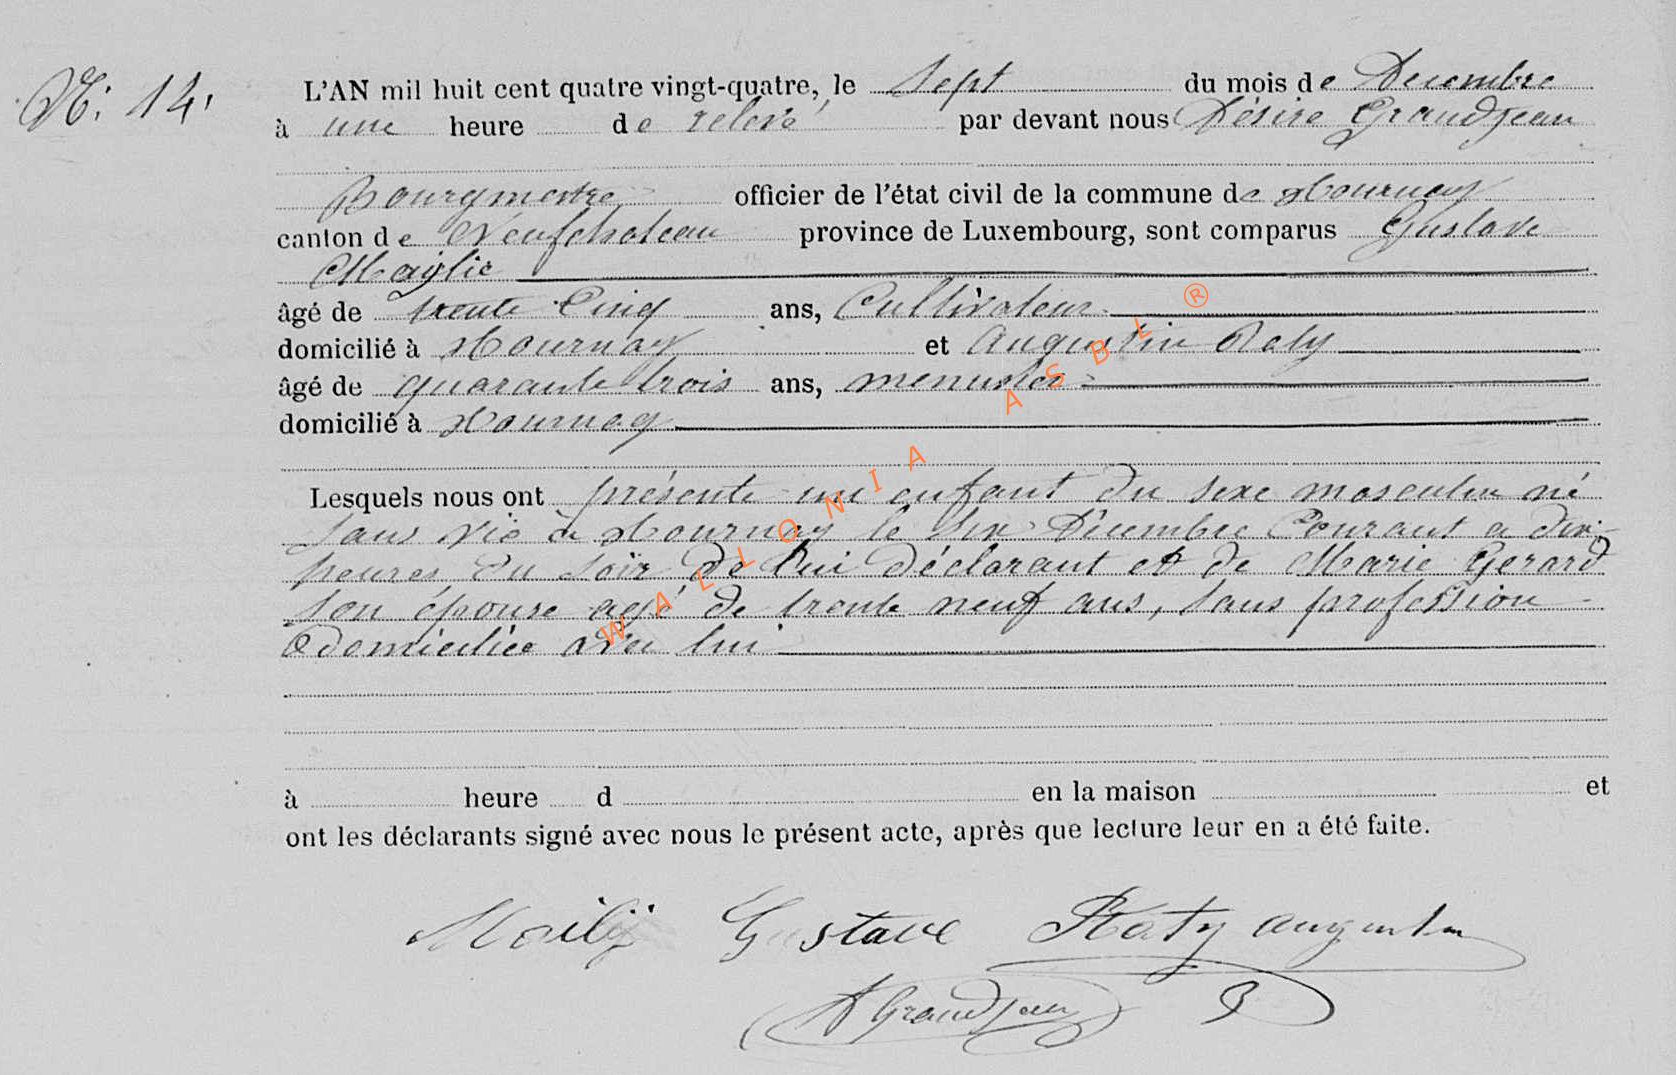 N: 14.
L'AN mil huit cent quatre vingt-quatre, le Sept du mois de Decembre
à une heure de relevé par devant nous Désiré Grandjean
Bourgmestre officier de l'état civil de la commune de Hournay
canton de Neufchateau province de Luxembourg, sont comparus Gustave
âgé de trente Cinq ans, Cultivateur
domicilié à Hournay et Augustin Raty
âgé de quarante trois ans, menusier
domicilié à Hournay
Lesquels nous ont présenté un enfant du sexe masculin né
sans vie à Hournay le six Décembre Courant a dix
heures du soir de lui déclarant et de Marie Gerard
son épouse agé de trente neuf ans, sans profession
domiciliée avec lui
à heure d en la maison et
ont les déclarants signé avec nous le présent acte, après que lecture leur en a été faite.
Gustave Raty augustin
Grandjean
WALLONIA ASBL ®